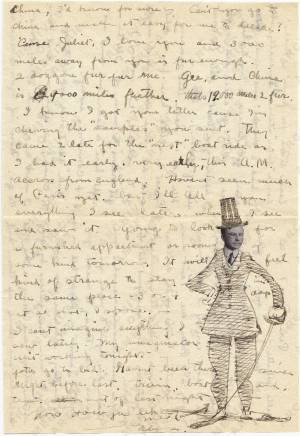 China, I'd know for more is Can't you go to
China and make it easy for me to decide!
'Cause Juliet, I love you and 3000
miles away from you is fur enough.
2 doggone fur fur me. Gee, and China
is 4000 miles further. thats 12000 miles 2 fur.
I know I got your letter cause I'm
chewing the "samples" you sent. They
came 2 late for the "next" boat ride as
I had it early, very early, this A.M.
across from England. Haven't seen much
of Paris yet. but I'll tell you
everything I see later when I see
and saw it. Going to look for
a furnished appartment or rooms of
some kind tomorrow. It will feel
kind of strange to stay in
the same place
at a time, I spose.
I cant imagine anything I
saw lately. My imaginator
isn't working tonight.
gotta go to bed. Haven't been there since
night before last. Trains, boats and
out of last night
now